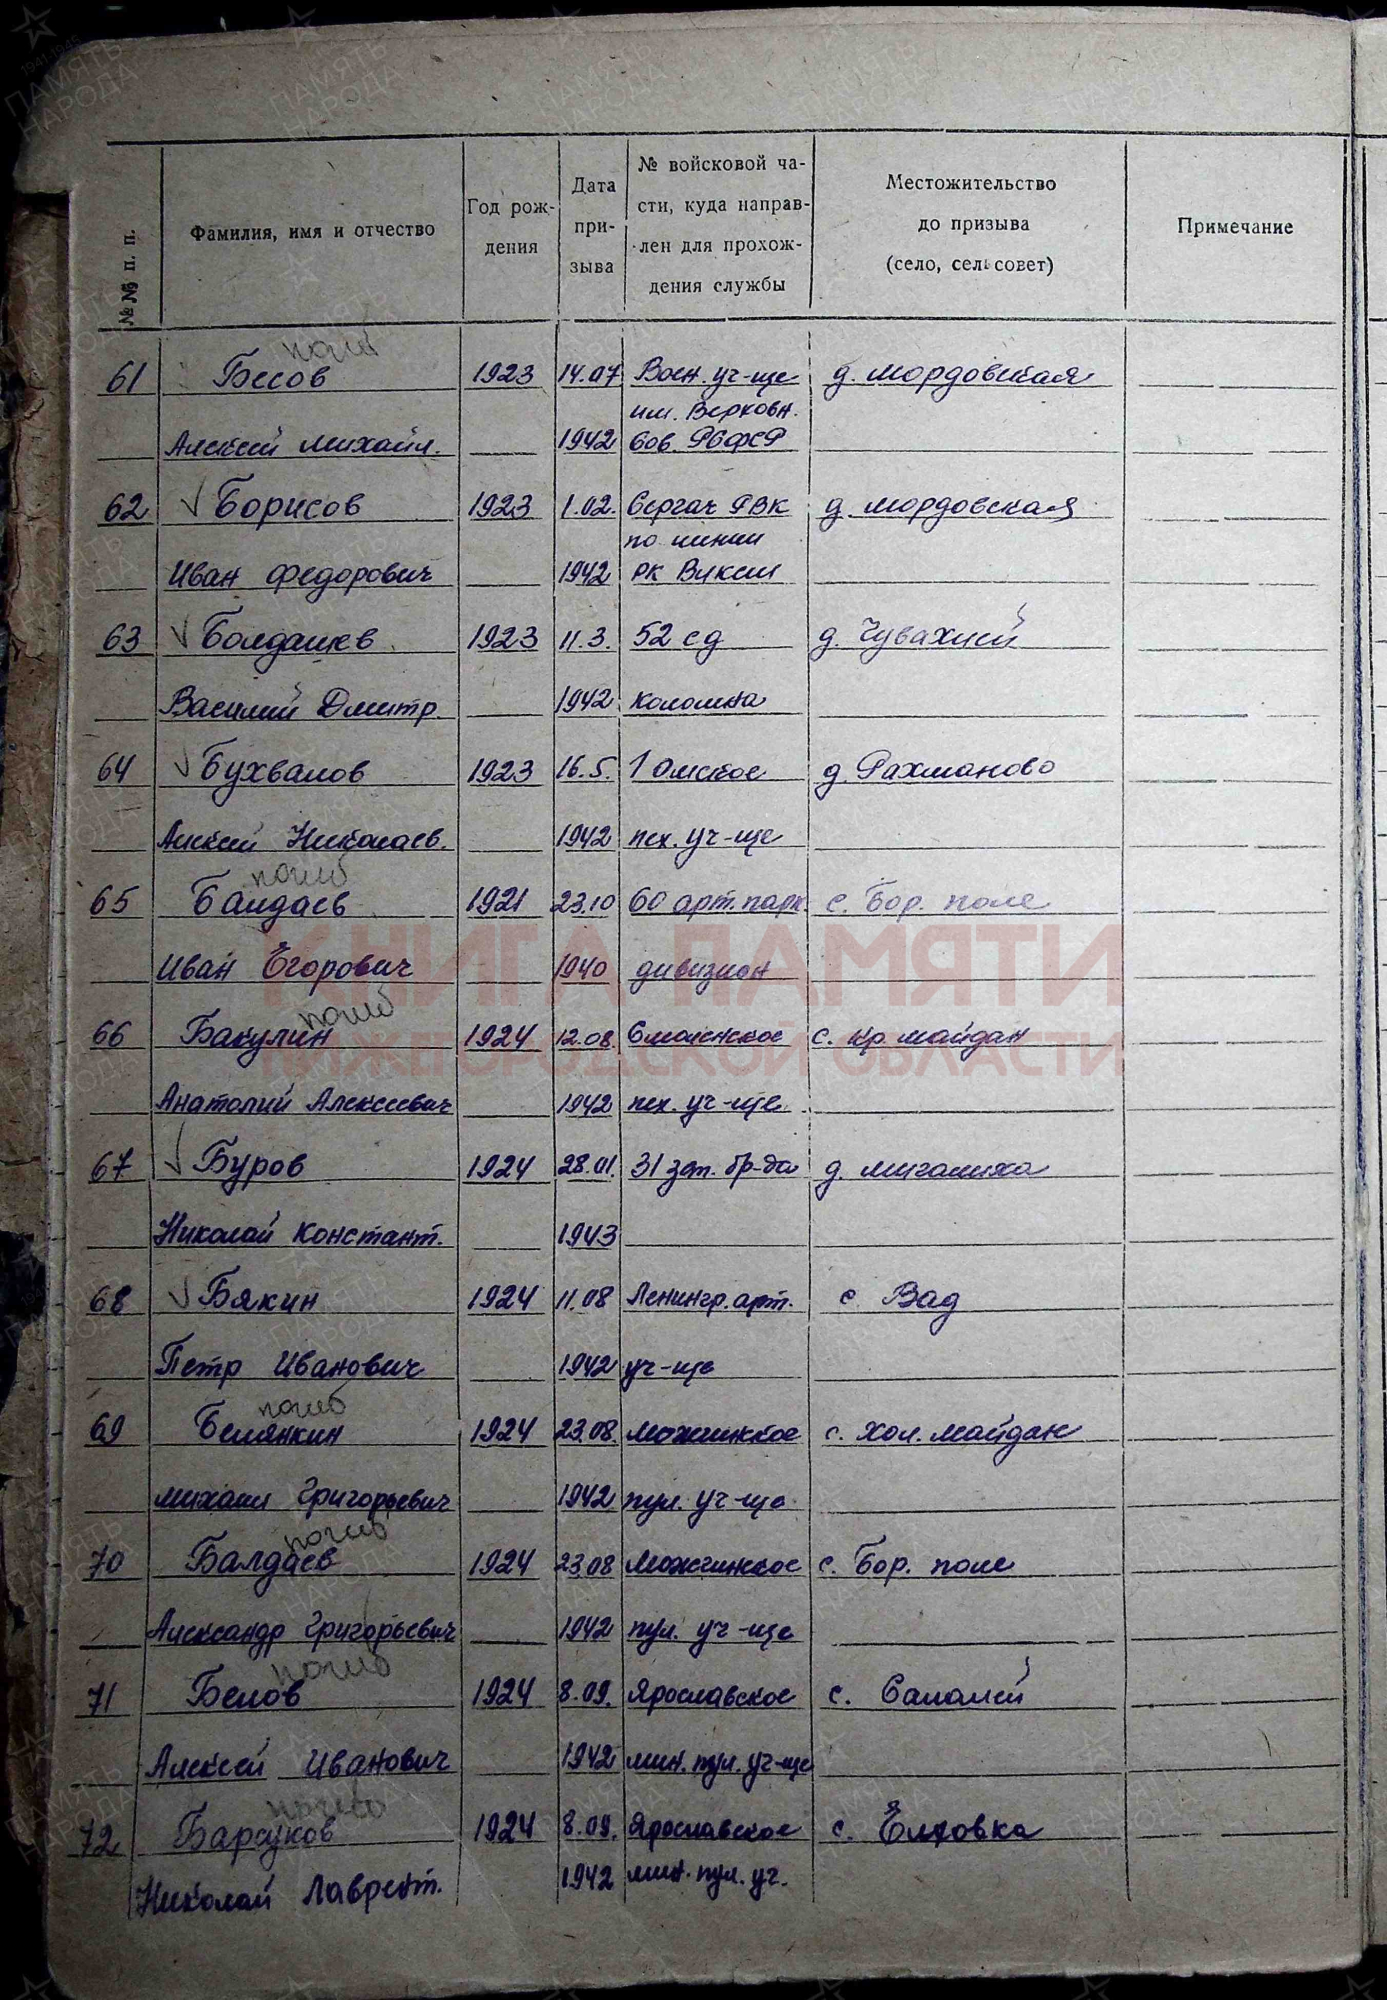 №№ п. п.
Фамилия, имя и отчество
Год рож-
дения
Дата
при-
зыва
№ войсковой ча-
сти, куда направ-
лен для прохож-
дения службы
Местожительство
до призыва
(село, сельсовет)
Примечание
погиб
61 Бесов 1923 14.07 Воен. уч-ще д. Мордовская
им. Верховн.
Алексей Михайл. 1942 Сов. РСФСР
62 Борисов 1923 1.02. Сергач РВК д. Мордовская
по линии
Иван Федорович 1942 РК
63 Болдашев 1923 11.3. 52 сд д.
Василий Дмитр. 1942 Коломна
64 Бухвалов 1923 16.5. 1 Омское д. Рахманово
Алексей Николаев. 1942 пех. уч-ще
погиб
65 Балдаев 1921 23.10 60 арт. парк. с. Бор. поле
Иван Егорович 1940 дивизион
погиб
66 Бакулин 1924 12.08. Смоленское с. Кр. Майдан
Анатолий Алексеевич 1942 пех. уч-ще
67 Буров 1924 28.01. 31 зап. бр-да д. Мигалиха
Николай Констант. 1943
68 Бякин 1924 11.08 Ленингр. арт. с Вад
Петр Иванович 1942 уч-ще
погиб
69 Белянкин 1924 23.08. Можгинское с. Хол. Майдан
Михаил Григорьевич 1942 пул. уч-ще
погиб
70 Балдаев 1924 23.08 Можгинское с. Бор. поле
Александр Григорьевич 1942 пул. уч-ще
погиб
71 Белов 1924 8.09. Ярославское с. Салалей
Алексей Иванович 1942 мин. пул. уч-ще
погиб
72 Барсуков 1924 8.09. Ярославское с. Елховка
Николай Лаврент. 1942 мин. пул. уч.
КНИГА ПАМЯТИ
НИЖЕГОРОДСКОЙ ОБЛАСТИ
ПАМЯТЬ НАРОДА